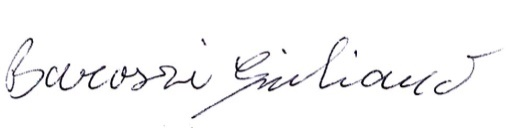 Barossi Giuliano